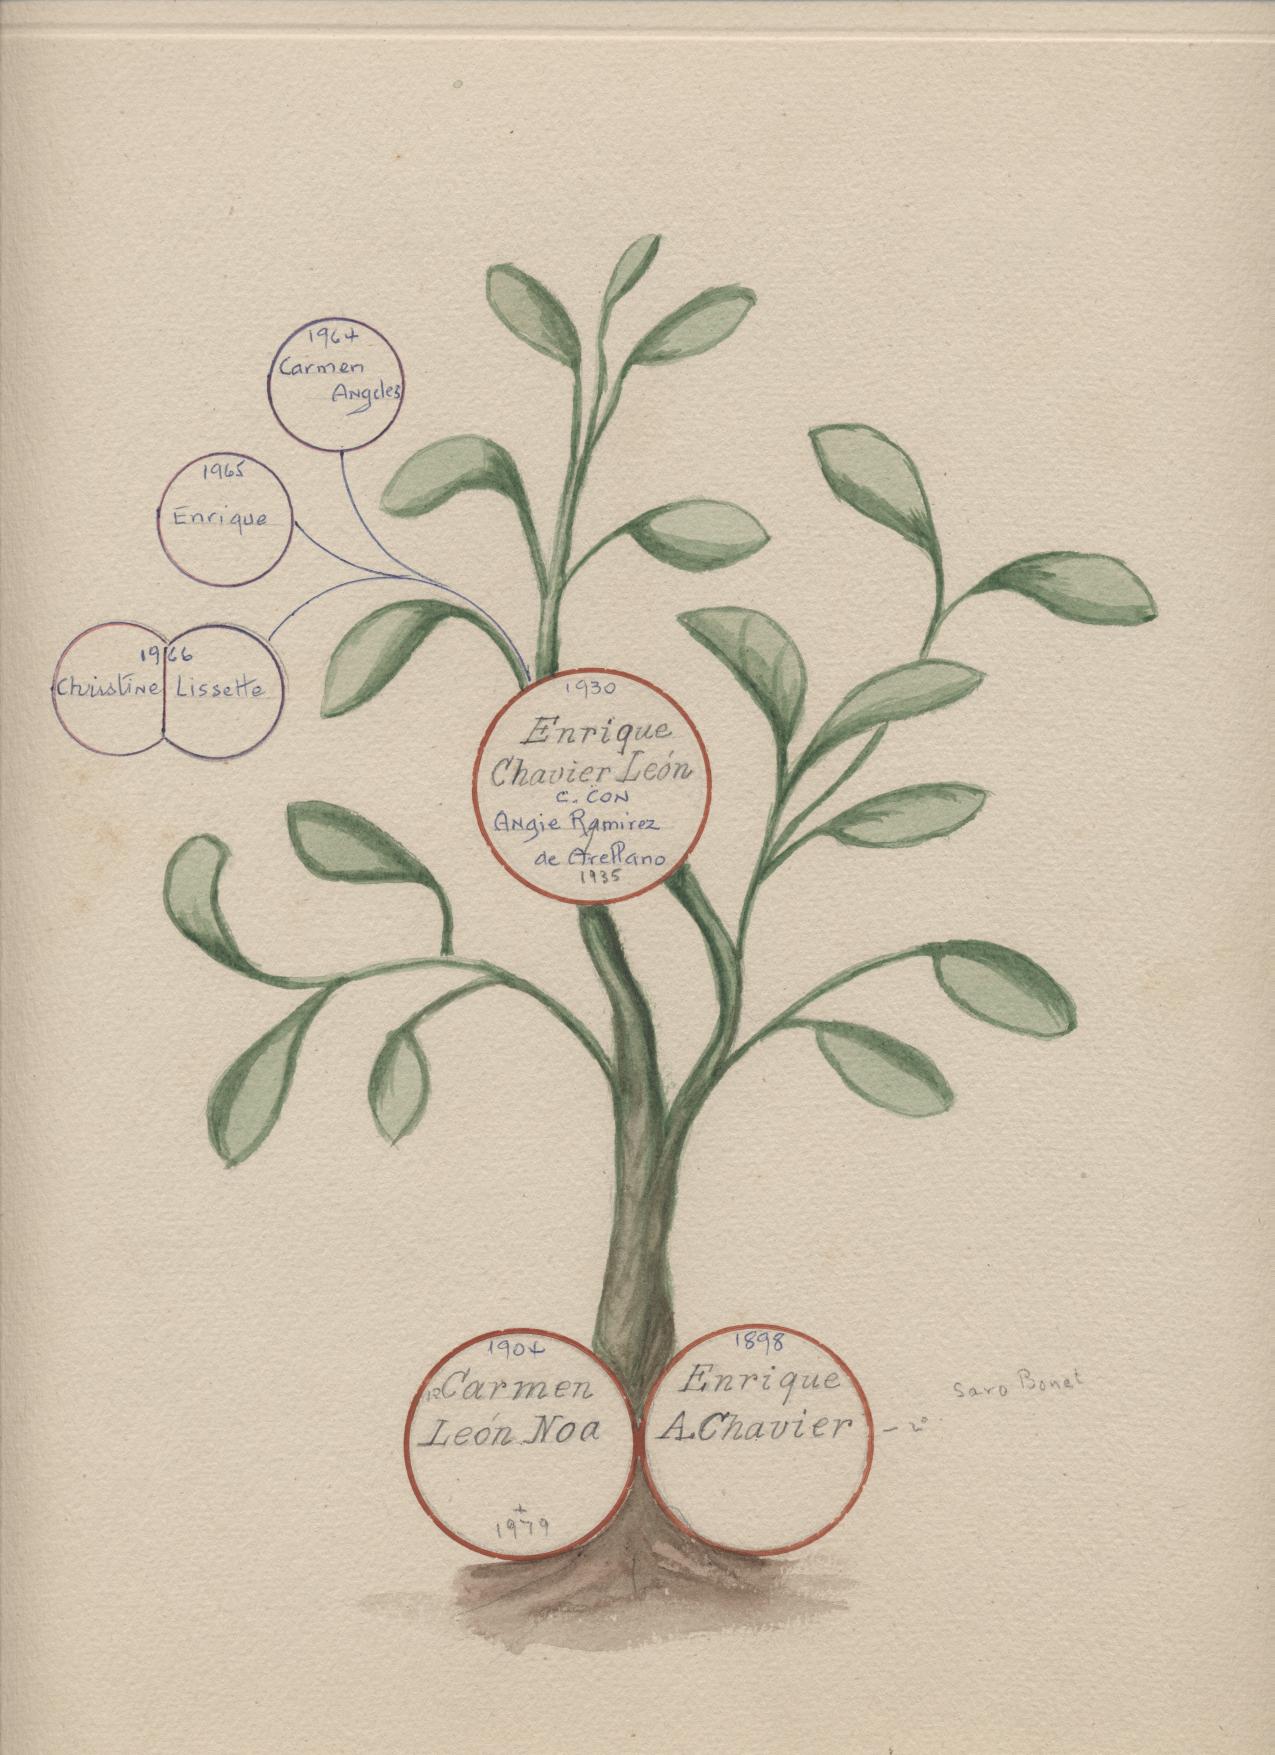 1964
Carmen
Angeles
1965
Enrique
1966
Christine Lissette
1930
Enrique
Chavier León
C. CON
Angie Ramirez
de Arellano
1935
1904
Carmen
León Noa
+
1979
1898
Enrique
A. Chavier
- 2º
Saro Bonet